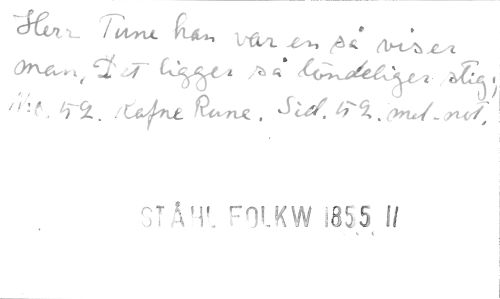 Herr Tune han var en så viser
man, Det ligger så löndeliger stig;
No. 52. Rafne Rune. Sid. 52. met-not.
STÅHL FOLKW 1855 II